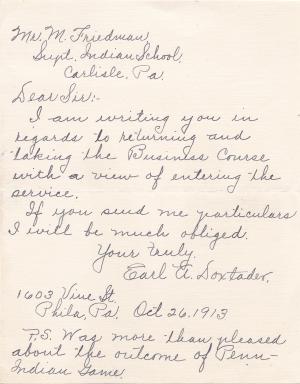 Mr. M. Friedman,
Supt. Indian School,
Carlisle, Pa.
Dear Sir:-
I am writing you in
regards to returning and
taking the Business Course
with a view of entering the
service.
If you send me particulars
I will be much obliged.
Your truly,
Earl A. Doxtader.
1603 Vine St.
Phila, Pa. Oct 26, 1913
P.S. Was more than pleased
about the outcome of Penn-
Indian Game.